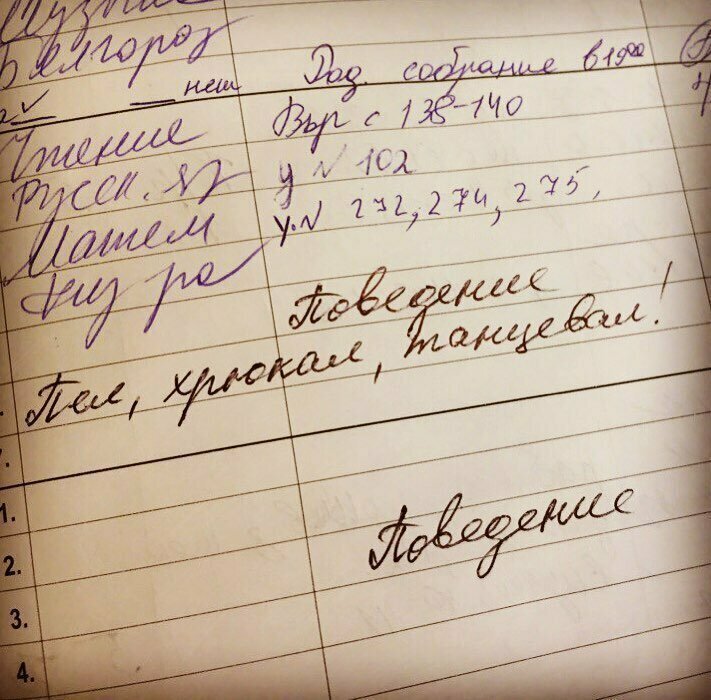 Белгороз
неш Род. собрание в 19⁰⁰
Чтение Выр с 138-140
Русск. яз у № 102
Матем у.№ 272, 274, 275,
Физ ра
Поведение
Пел, хрюкал, танцевал!
1.
Поведение
2.
3.
4.